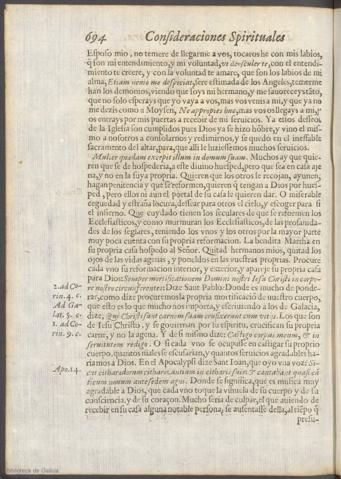 694 Consideraciones Spirituales
Esposo mio, no temere de llegarme a vos, tocaros he con mis labios,
q̃ son mi entendimiento, y mi voluntad, vt desculer te, con el entendi-
miento te creere, y con la voluntad te amare, que son los labios de mi
alma, Etiam nemo me despiciat, sere estimada de los Angeles, temerme
han los demonios, viendo que soys mi hermano, y me fauoreceys tãto,
que no solo esperays que yo vaya a vos, mas vos venis a mi, y que ya no
me dezis como a Moysen, Ne appropies huc, mas vos os llegays a mi, y
os entrays por mis puertas a recebir de mi seruicios. Ya estos desseos
de la Iglesia son cumplidos pues Dios ya se hizo hõbre, y vino el mis-
mo a nosotros a consolarnos y redimirnos, y se quedo en el ineffable
sacramento del altar, para, que alli le hiziessemos muchos seruicios.
Mulier quædam excepit illum in domum suam. Muchos ay que quie-
ren que se de hospederia, a este diuino huesped, pero que sea en casa aje
na, y no en la suya propria. Quieren que los otros le recojan, ayunen,
hagan penitencia y que se reformen, quieren q̃ tengan a Dios por hues-
ped, pero ellos ni aun el portal de su casa le quieren dar. O miserable
ceguedad y estraña locura, dessear para otros el cielo, y escoger para si
el infierno. Que cuydado tienen los seculares de que se reformen los
Ecclesiasticos, y como murmuran los Ecclesiasticos, de las profanida-
des de los seglares, teniendo los vnos y los otros por la mayor parte
muy poca cuenta con su propria reformacion. La bendita Martha en
su propria casa hospedo al Señor. Quitad hermanos mios, quitad los
ojos de las vidas agenas, y poneldos en las vuestras proprias. Procure
cada vno su reformacion interior, y exterior, y apareje su propria casa
para Dios: Semper mortificationem Domini nostri Iesu Christi in corpo-
2. ad Co- re nostro circumferentes: Dize Sant Pablo: Donde es mucho de ponde-
rin. 4. c. rar, como dize procuremos la propria mortificaciõ de nuestro cuerpo,
Ad Ga- que esto es lo que mucho nos importa, y escriuiendo a los de Galacia,
lat. 5. c. dize, Qui Christi sunt carnem suam crucifixerunt cum vitijs. Los que son
1. ad Co- de Iesu Christo, y se gouiernan por su spiritu, crucifican su propria
rin. 9. c. carne, y no la agena. Y de si mismo dize: Castigo corpus meum, & in
seruitutem redigo. O si cada vno se ocupasse en castigar su proprio
cuerpo, quantos males se escusarian, y quantos seruicios agradables ha-
riamos a Dios. En el Apocalypsi dize Sant Ioan, que oyo vna voz: si-
Apo. 14. cut citharœdorum citharizantium in citharis suis & cantabant quasi cã
ticum nouum ante sedem agni. Donde se significa, que es musica muy
agradable a Dios, que cada vno toque la vihuela de su cuerpo y de su
consciencia, y de su coraçon. Mucho seria de culpar, el que auiendo de
recebir en su casa alguna notable persona, se ausentasse della, al tiẽpo q̃
presu-
Biblioteca de Galicia